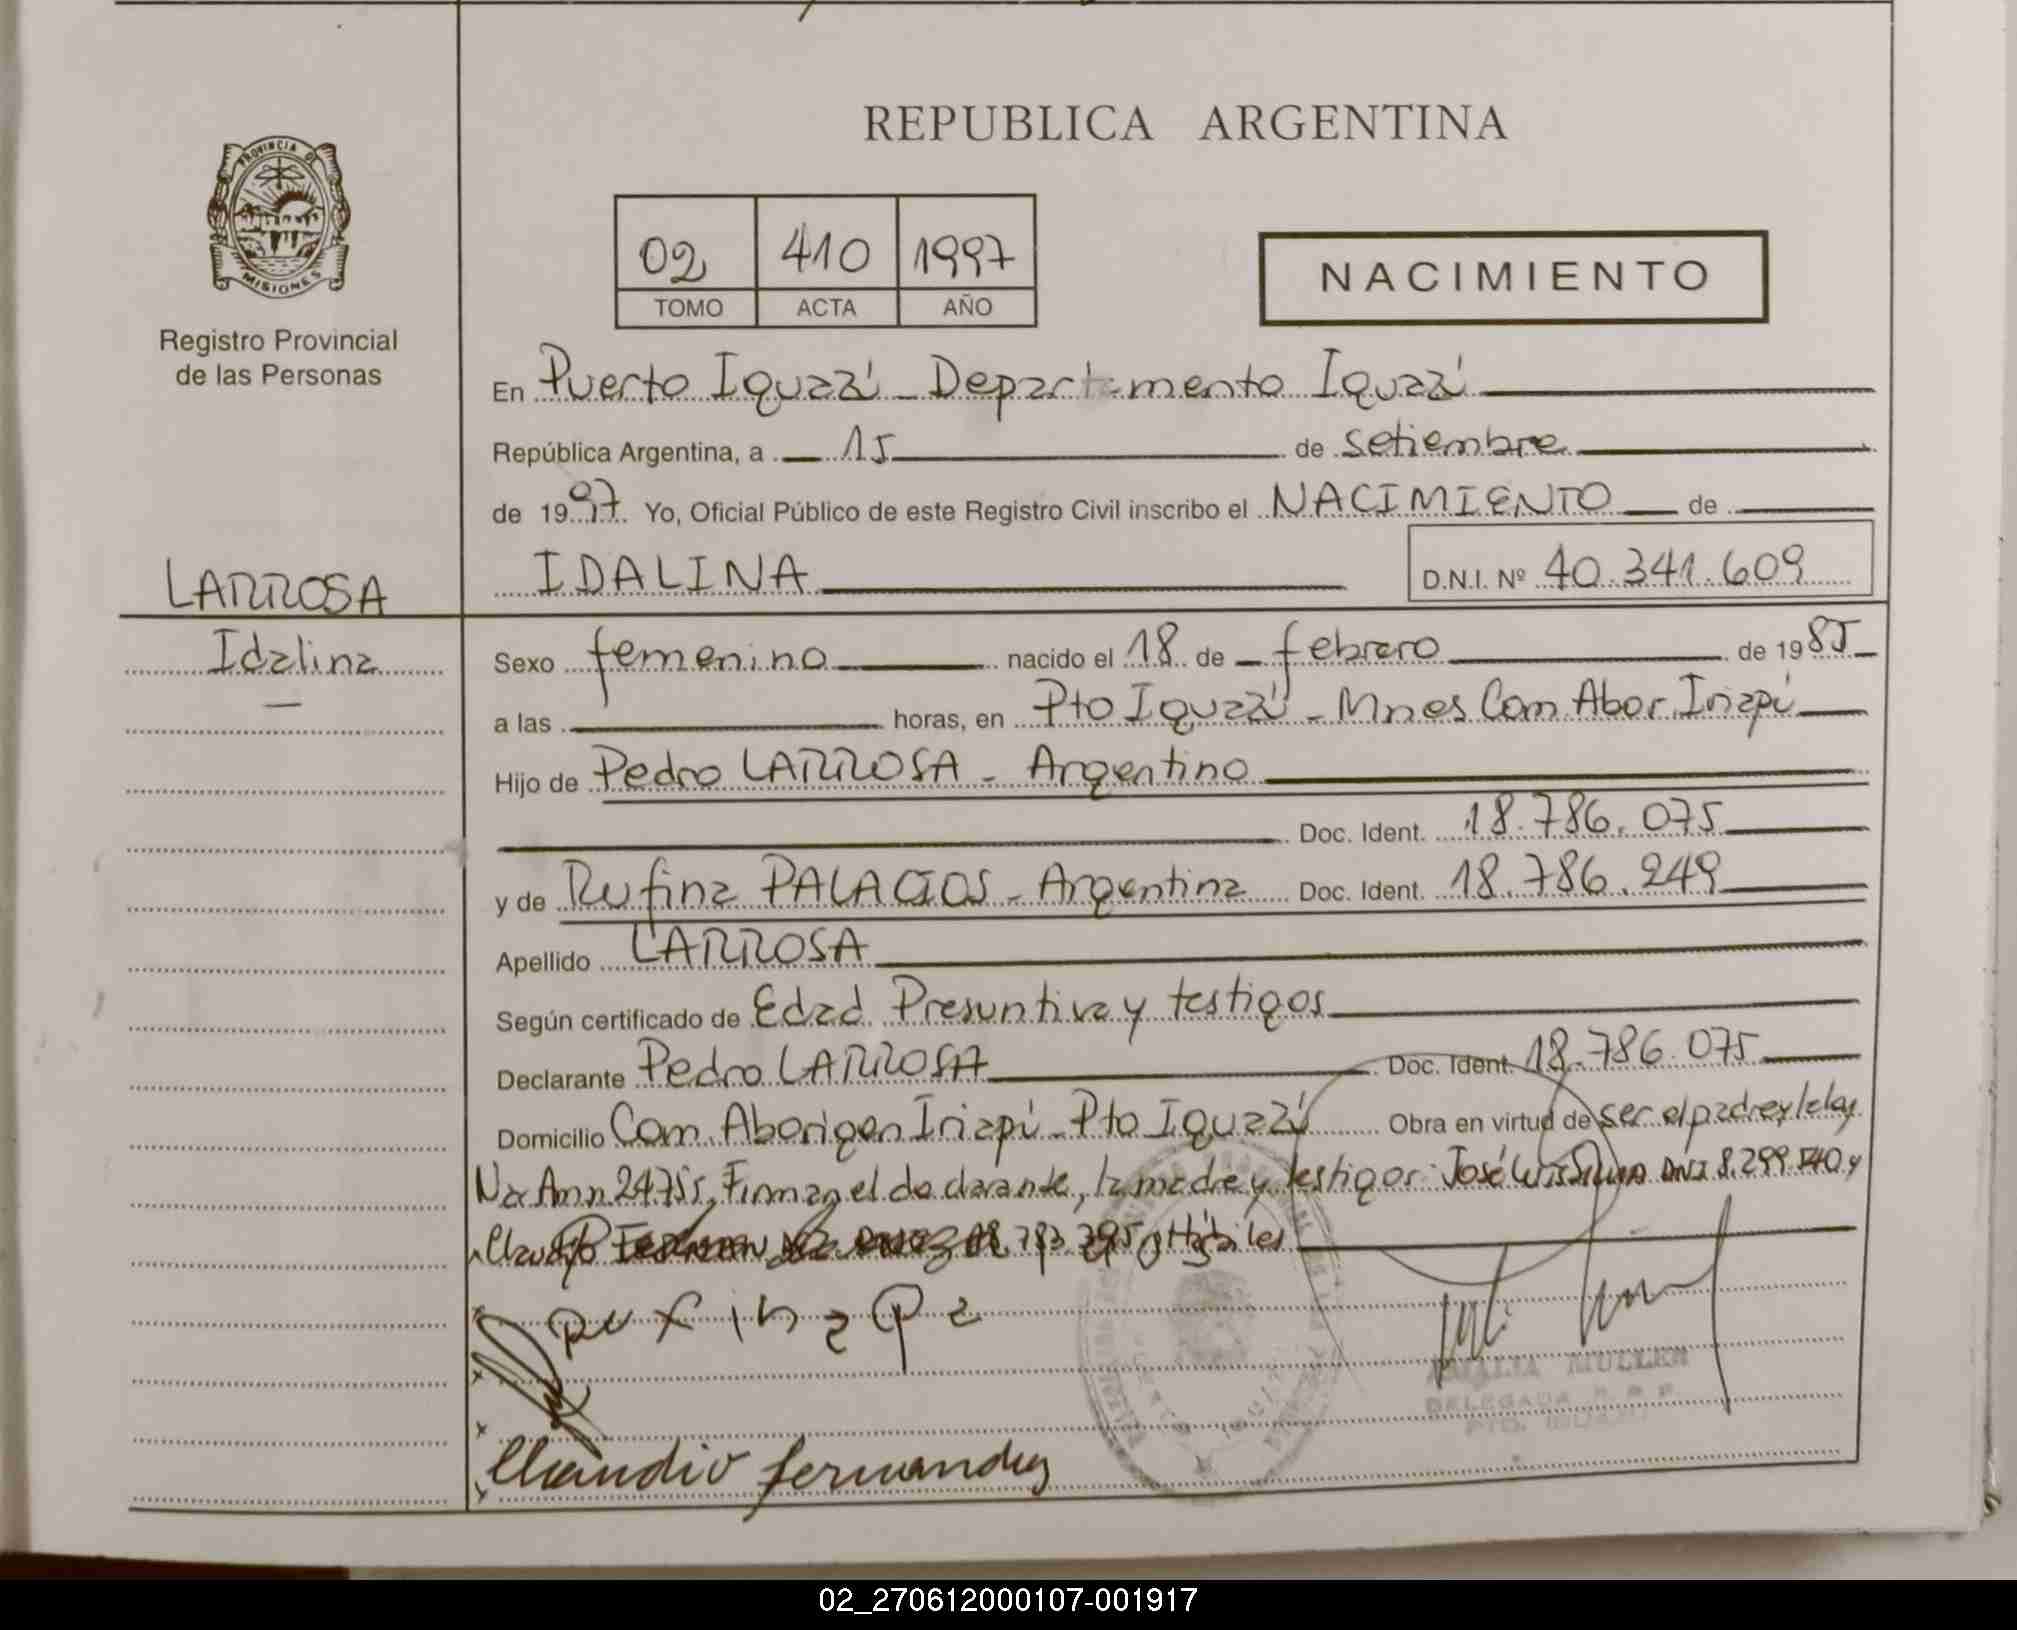 REPUBLICA ARGENTINA
PROVINCIA DE
MISIONES
Registro Provincial
de las Personas
02 410 1997
TOMO ACTA AÑO
NACIMIENTO
En Puerto Iguazú - Departamento Iguazú
República Argentina, a 15 de setiembre
de 1997 Yo, Oficial Público de este Registro Civil inscribo el NACIMIENTO de
LARROSA
IDALINA D.N.I. Nº 40.341.609
Idalina
Sexo femenino nacido el 18 de febrero de 1985
a las horas, en Pto Iguazú - Mnes Com Abor. Iriapú
Hijo de Pedro LARROSA - Argentino
Doc. Ident. 18.786.075
y de Rufina PALACIOS - Argentina Doc. Ident. 18.786.249
Apellido LARROSA
Según certificado de Edad Presuntiva y testigos
Declarante Pedro LARROSA Doc. Ident. 18.786.075
Domicilio Com. Aborigen Iriapú - Pto Iguazú Obra en virtud de ser el padre y leley
Firman el declarante, la madre y testigos: José DNI 8.299.540 y
Claudio Hábiles
Claudio fernandez
AMALIA MULLER
DELEGADA R. P. P.
PTO. IGUAZU
02_270612000107-001917